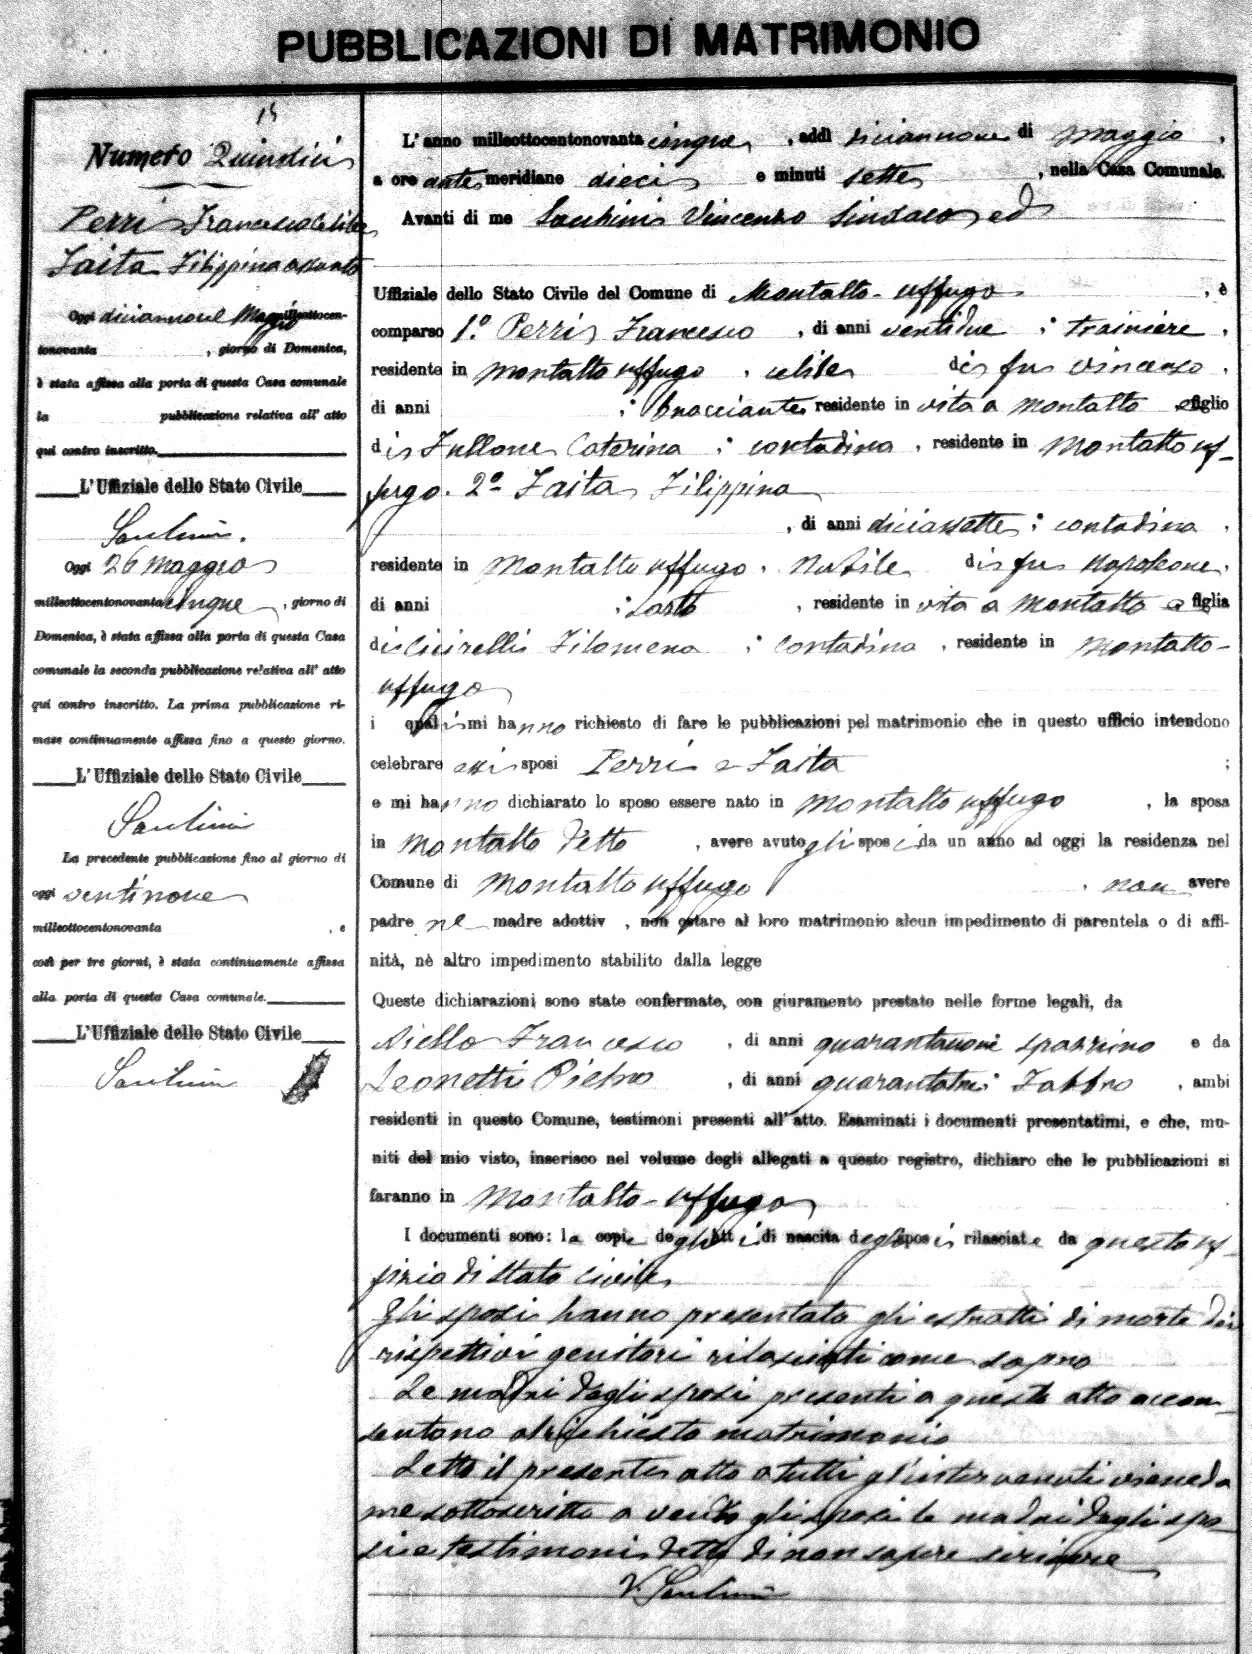 PUBBLICAZIONI DI MATRIMONIO
15
Numero Quindici
Perri Francesco celibe
Zaita Filippina
Oggi diciannove Maggio milleottocen-
tonovanta , giorno di Domenica,
è stata affissa alla porta di questa Casa comunale
la pubblicazione relativa all' atto
qui contro inscritto.
L'Uffiziale dello Stato Civile
Oggi 26 maggio
milleottocentonovanta cinque , giorno di
Domenica, è stata affissa alla porta di questa Casa
comunale la seconda pubblicazione relativa all' atto
qui contro inscritto. La prima pubblicazione ri-
mase continuamente affissa fino a questo giorno.
L'Uffiziale dello Stato Civile
La precedente pubblicazione fino al giorno di
oggi ventinove
milleottocentonovanta , e
così per tre giorni, è stata continuamente affissa
alla porta di questa Casa comunale.
L'Uffiziale dello Stato Civile
L'anno milleottocentonovanta cinque , addì diciannove di maggio ,
a ore ante meridiane dieci e minuti sette , nella Casa Comunale.
Avanti di me Vincenzo Sindaco ed
Uffiziale dello Stato Civile del Comune di Montalto-Uffugo , è
comparso 1.° Perri Francesco , di anni ventidue : trainiere ,
residente in Montalto Uffugo , celibe di fu Vincenzo ,
di anni : bracciante residente in vita a Montalto e figlio
di Fullone Caterina : contadina , residente in Montalto Uf-
fugo. 2° Zaita Filippina
, di anni diciassette : contadina ,
residente in Montalto Uffugo . Nubile di fu Napoleone ,
di anni : sarto , residente in vita a Montalto e figlia
di Cicirelli Filomena : contadina , residente in Montalto-
Uffugo
i quali mi hanno richiesto di fare le pubblicazioni pel matrimonio che in questo ufficio intendono
celebrare essi sposi Perri e Zaita ;
e mi hanno dichiarato lo sposo essere nato in Montalto Uffugo , la sposa
in Montalto detto , avere avuto gli sposi da un anno ad oggi la residenza nel
Comune di Montalto Uffugo , non avere
padre ne madre adottiv , non ostare al loro matrimonio alcun impedimento di parentela o di affi-
nità, nè altro impedimento stabilito dalla legge
Queste dichiarazioni sono state confermate, con giuramento prestato nelle forme legali, da
Aiello Francesco , di anni quarantanove spazzino e da
Leonetti Pietro , di anni quarantatre : Fabbro , ambi
residenti in questo Comune, testimoni presenti all'atto. Esaminati i documenti presentatimi, e che, mu-
niti del mio visto, inserisco nel volume degli allegati a questo registro, dichiaro che le pubblicazioni si
faranno in Montalto-Uffugo
I documenti sono: le copie degli Atti di nascita degli sposi rilasciate da questo uf-
fizio di stato civile
Gli sposi hanno presentato gli estratti di morte dei
rispettivi genitori rilasciati come sopra
Le madri degli sposi presenti a questo atto accon-
sentono al richiesto matrimonio
Letto il presente atto a tutti gl'intervenuti viene da
me sottoscritto gli sposi le madri degli spo-
si e testimoni detto di non sapere scrivere